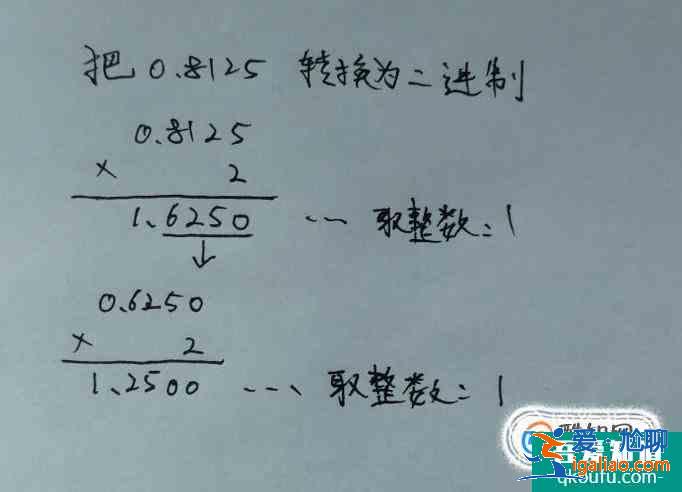 把 0.8125 转换为二进制
0.8125
× 2
1.6250 … 取整数:1
↓
0.6250
× 2
1.2500 … 取整数:1
爱尬聊
igaliao.com
qkoufu.com